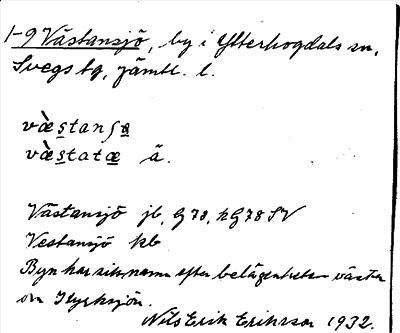 1-9 Västansjö, by i Ytterhogdals sn,
Svegs tg, Jämtl. l.
væ̀stanʃö
væ̀statæ ä.
Västansjö jb, G 78, kG 78 SV
Vestansjö kb
Byn har sitt namn efter belägenheten väster
om Styrksjön.
Nils Erik Eriksson 1932.